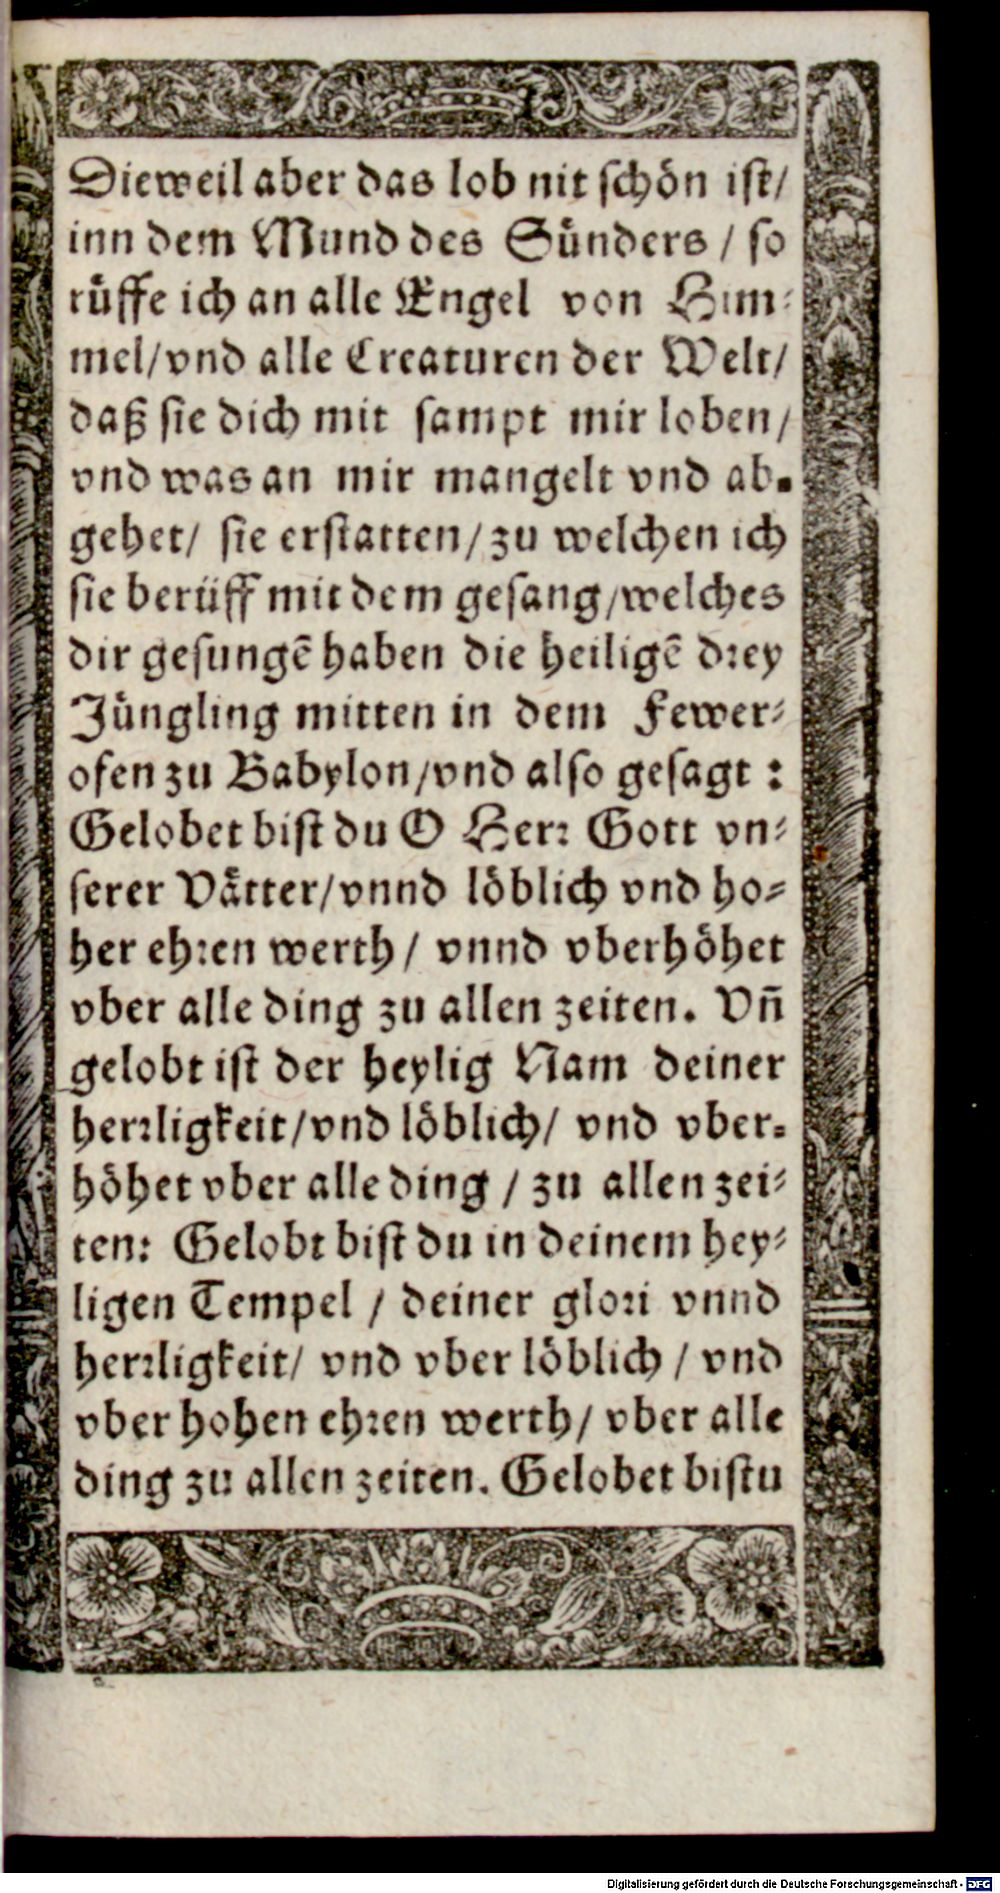 Dieweil aber das lob nit schön ist/
inn dem Mund des Sünders / so
rüffe ich an alle Engel von Him-
mel/vnd alle Creaturen der Welt/
daß sie dich mit sampt mir loben/
vnd was an mir mangelt vnd ab-
gehet/ sie erstatten/ zu welchen ich
sie berüff mit dem gesang/welches
dir gesungẽ haben die heiligẽ drey
Jüngling mitten in dem Fewer-
ofen zu Babylon/vnd also gesagt :
Gelobet bist du O Herr Gott vn-
serer Vätter/vnnd löblich vnd ho-
her ehren werth / vnnd vberhöhet
vber alle ding zu allen zeiten. Vñ
gelobt ist der heylig Nam deiner
herrligkeit/vnd löblich/ vnd vber-
höhet vber alle ding / zu allen zei-
ten: Gelobt bist du in deinem hey-
ligen Tempel / deiner glori vnnd
herrligkeit/ vnd vber löblich / vnd
vber hohen ehren werth/ vber alle
ding zu allen zeiten. Gelobet bistu
Digitalisierung gefördert durch die Deutsche Forschungsgemeinschaft - DFG